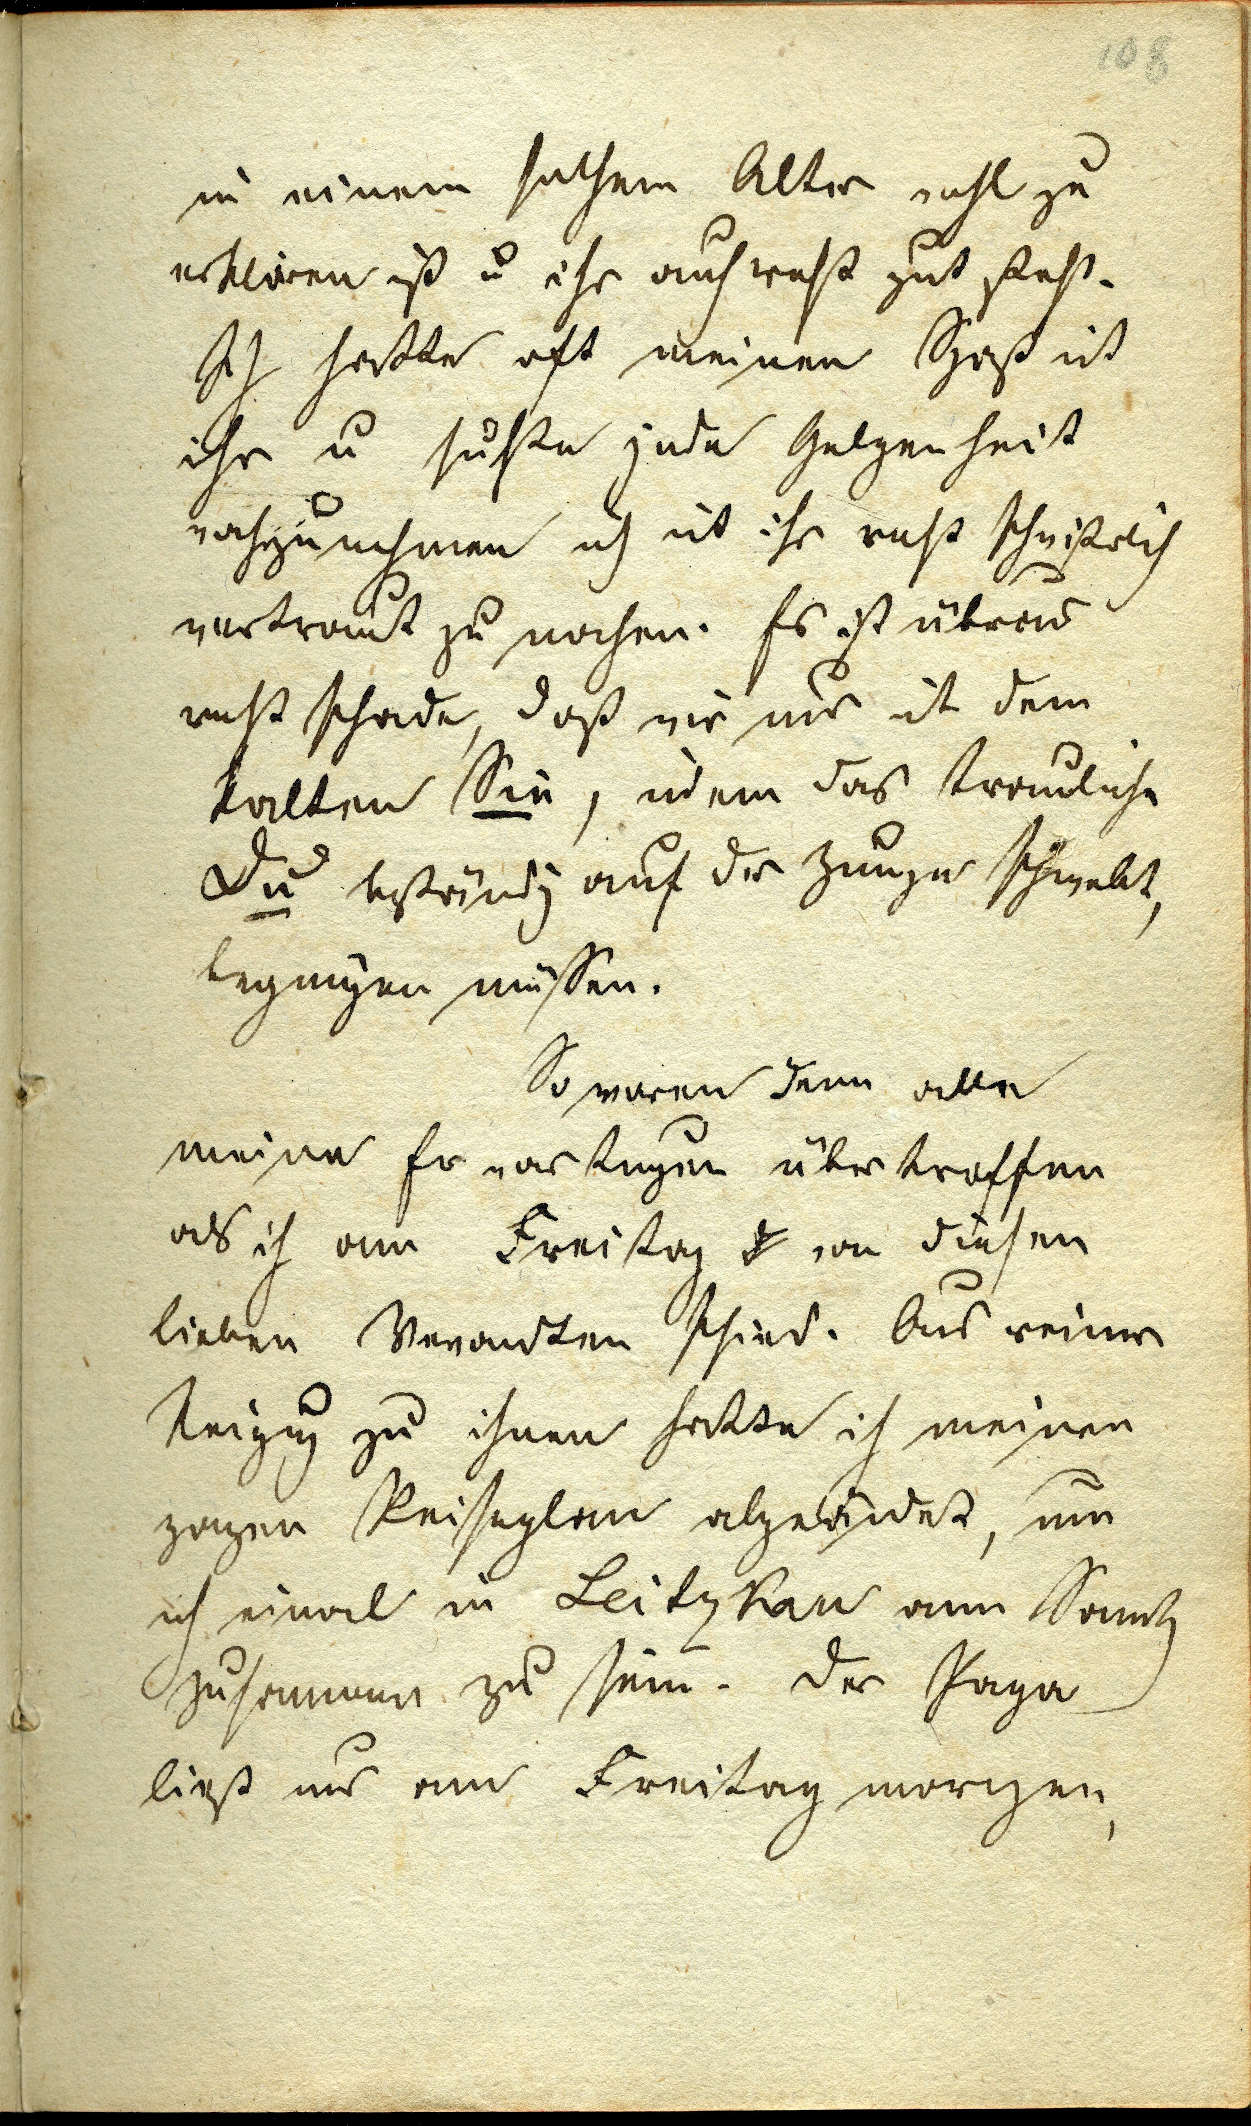 108
in einem solchem Alter wohl zu
erklären ist u ihr auch recht gut steht.
Ich hatte oft meinen Spaß mit
ihr u suchte jede Gelegenheit
wahrzunehmen mich mit ihr recht
vertraut zu machen. Es ist überaus
recht schade, daß wir uns mit dem
kalten Sie, indem das trauliche
Du beständig auf der Zunge schwebt,
begnügen müssen.
So waren denn alle
meine Erwartungen übertroffen
als ich am Freitag von diesen
lieben Verwandten schied. Aus reiner
Neigung zu ihnen hatte ich meinen
ganzen Reiseplan abgeändet, um
noch einmal in Leitzkau am Sonntag
zusammen zu sein. Der Papa
ließ uns am Freitag morgen,